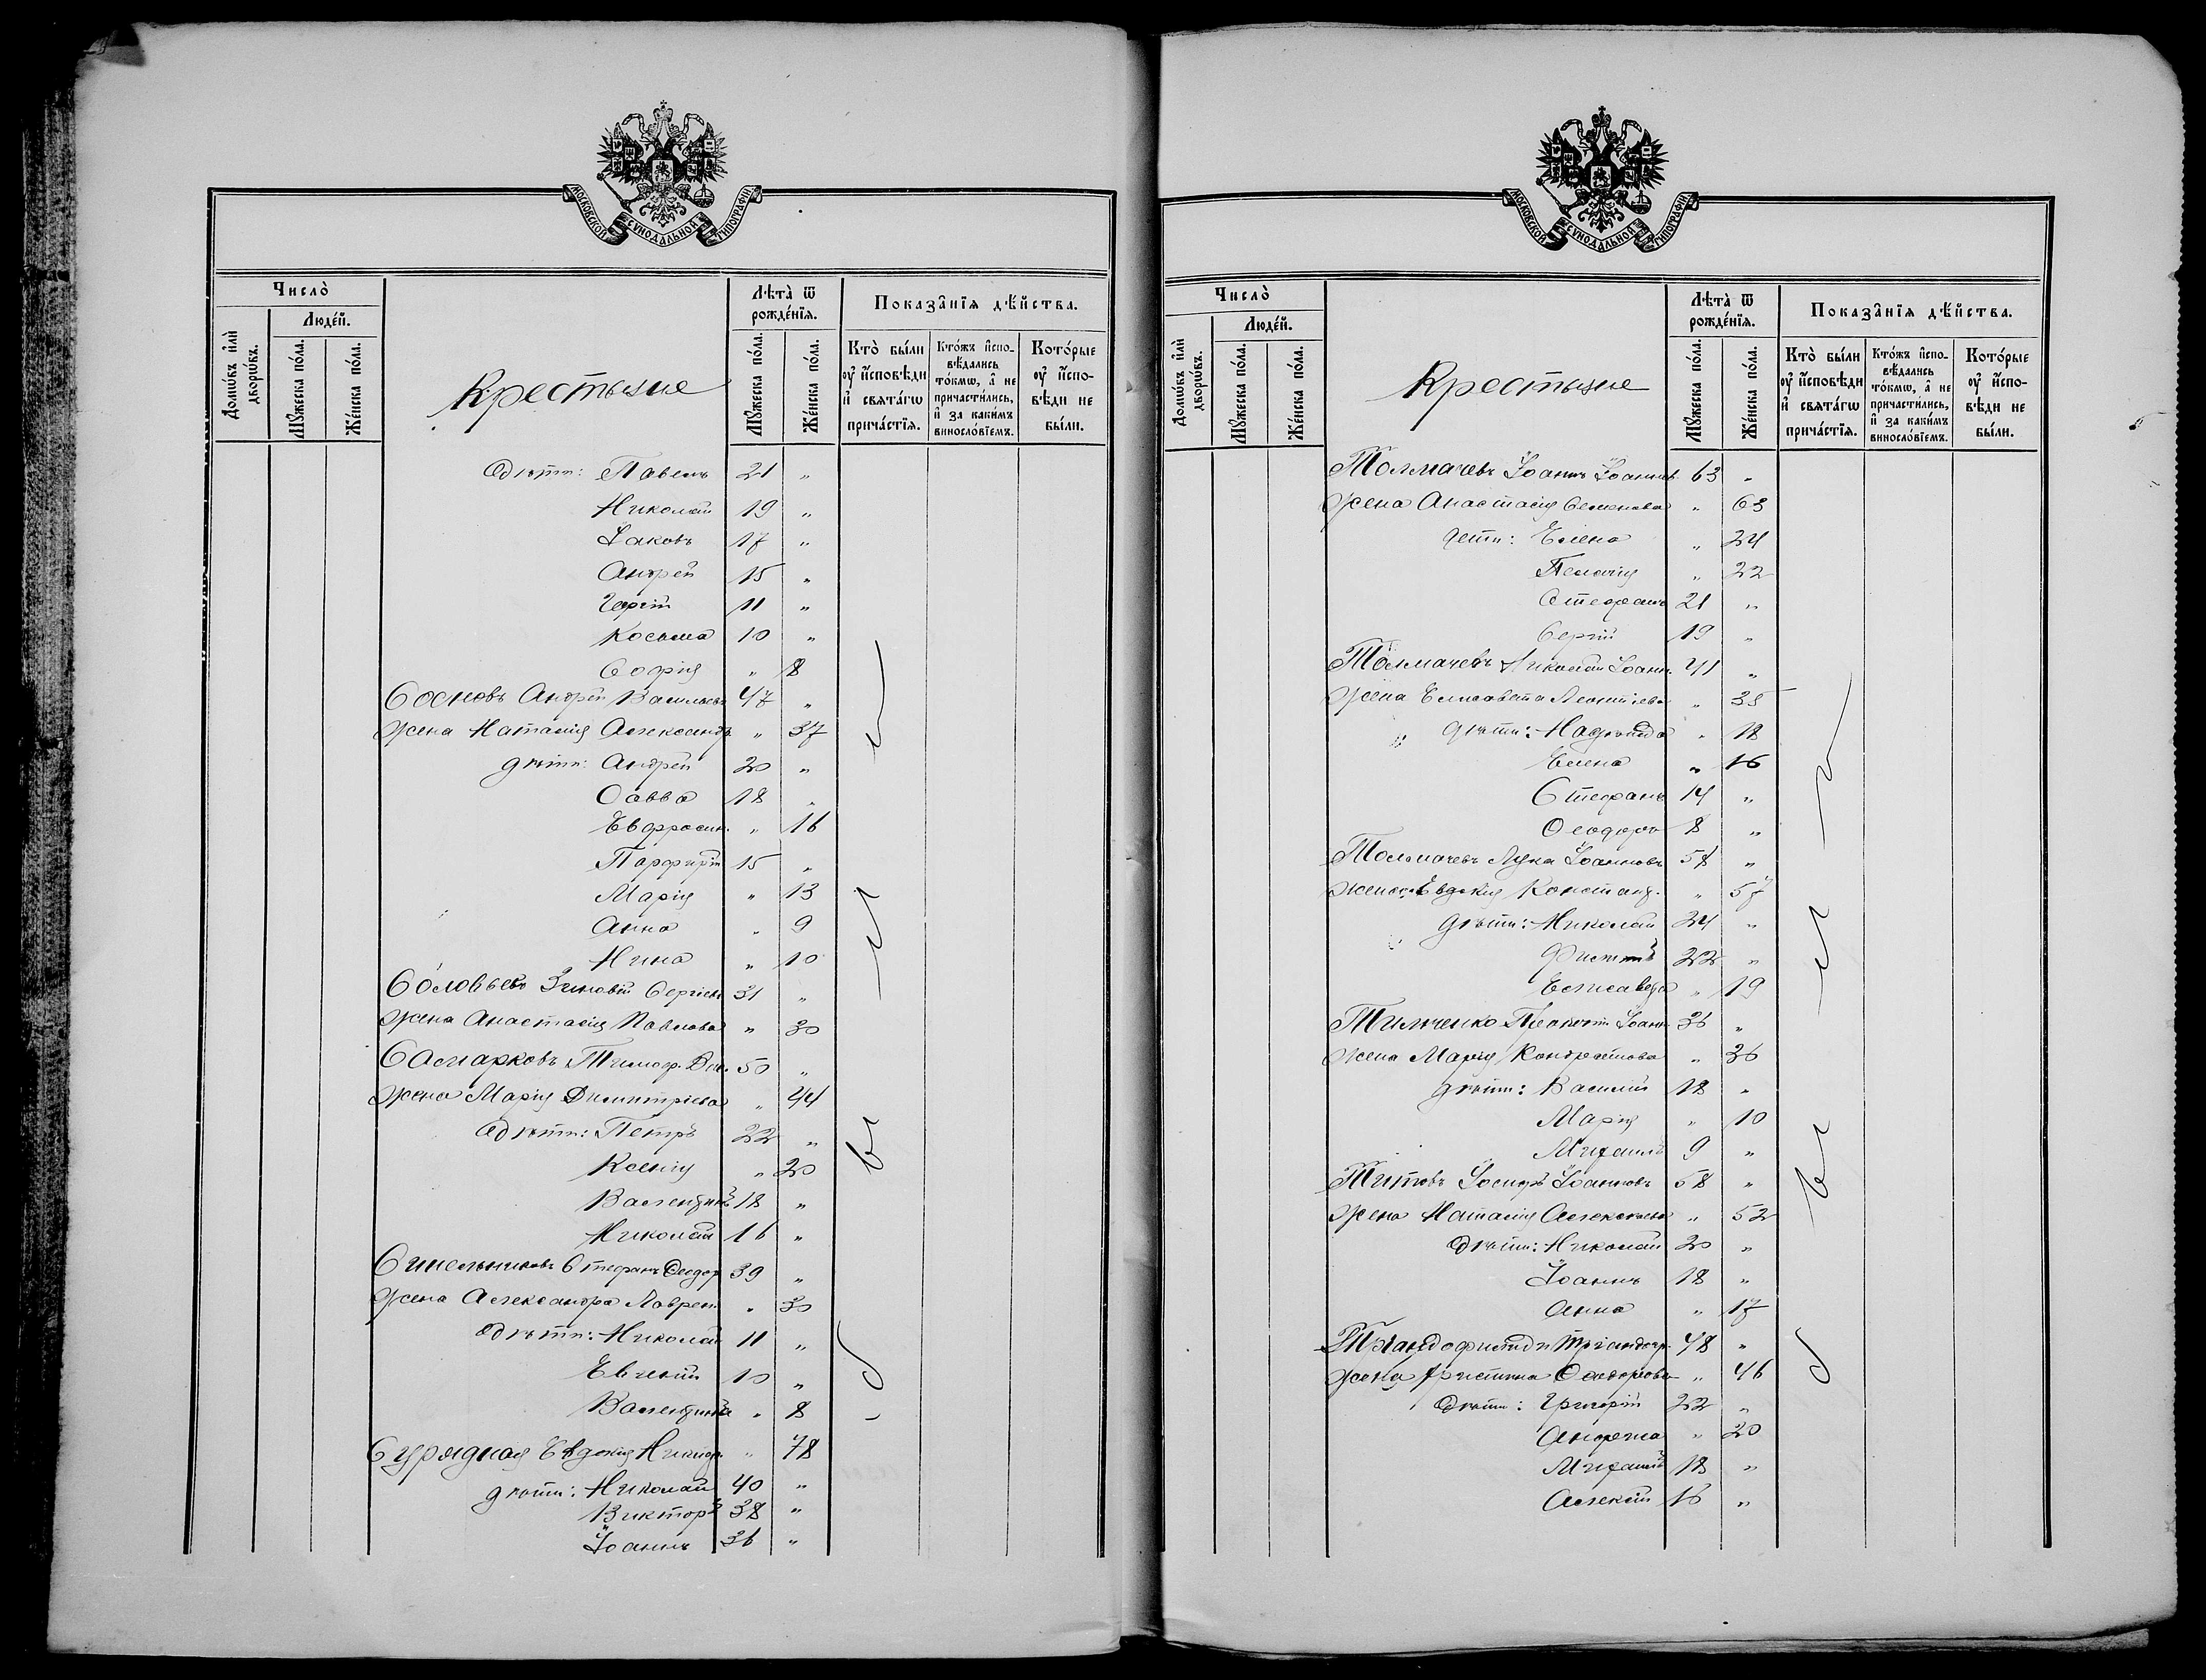 МОСКОВСКОЙ СѴНОДАЛЬНОЙ ТИПОГРАФІИ
Число̀
Люде́й.
Домѡ́въ и҆лѝ дворѡ́въ.
Мꙋ́жеска по́ла.
Же́нска по́ла.
Крестьяне
Лѣта̀ ѿ рожде́нїѧ.
Мꙋ́жеска по́ла.
Же́нска по́ла.
Показа̑нїѧ дѣ́йства.
Кто̀ бы́ли ᲂу҆ и҆сповѣди и҆ свѧта́гѡ прича́стїѧ.
Кто́жъ и҆сповѣдались то́кмѡ, а҆ не причасти́лись, и҆ за каки́мъ винослоӂвїемъ.
Кото́рые ᲂу҆ и҆сповѣди не бы́ли.
дѣти: Павелъ 21 „
Николай 19 „
Іаковъ 17 „
Андрей 15 „
Георгій 11 „
Косьма 10 „
Софія „ 8
Сосновъ Андрей Васильевъ 47 „
Жена Наталія Александр „ 37
дѣти: Андрей 20 „
Савва 18 „
Евфросин. „ 16
Порфирій 15 „
Марія „ 13
Анна „ 9
Нина „ 10
Соловьевъ Зиновій Сергіевъ 31 „
Жена Анастасія Павлова „ 30
Самарковъ Тимоф. Вас. 50 „
Жена Марія Димитріева „ 44
дѣти: Петръ 22 „
Ксенія „ 20
Валентинъ 18 „
Николай 16 „
Синельниковъ Стефанъ Ѳеодор 39 „
Жена Александра Лаврен. „ 30
дѣти: Николай 11 „
Евгеній 10 „
Валентина „ 8
Сурядная Евдокія Никиф. „ 78
дѣти: Николай 40 „
Викторъ 38 „
Іоаннъ 36 „
МОСКОВСКОЙ СѴНОДАЛЬНОЙ ТИПОГРАФІИ
Число̀
Люде́й.
Домѡ́въ и҆лѝ дворѡ́въ.
Мꙋ́жеска по́ла.
Же́нска по́ла.
Крестьяне
Лѣта̀ ѿ рожде́нїѧ.
Мꙋ́жеска по́ла.
Же́нска по́ла.
Показа̑нїѧ дѣ́йства.
Кто̀ бы́ли ᲂу҆ и҆сповѣди и҆ свѧта́гѡ прича́стїѧ.
Кто́жъ и҆сповѣдались то́кмѡ, а҆ не причасти́лись, и҆ за каки́мъ винослоӂвїемъ.
Кото́рые ᲂу҆ и҆сповѣди не бы́ли.
Толмачевъ Іоаннъ Іоаннов. 63 „
Жена Анастасія Семенова „ 63
дети: Елена „ 24
Пелагія „ 22
Стефанъ 21 „
Сергій 19 „
Толмачевъ Николай Іоанн. 41 „
Жена Елисавета Леонтіева „ 35
дѣти: Надежда „ 18
Елена „ 16
Стефанъ 14 „
Ѳеодоръ 8 „
Толмачевъ Лука Іоанновъ 58 „
Жена Евдокія Констант. „ 57
дѣти: Николай 24 „
22 „
Елисавета „ 19
Тильченко Іоанн 36 „
Жена Марія Кондратова „ 36
дѣти: Василій 18 „
Марія „ 10
Михаилъ 9 „
Титовъ Іосифъ Іоанновъ 58 „
Жена Наталія Алексеева „ 52
дѣти: Николай 20 „
Іоаннъ 18 „
Анна „ 17
48 „
Жена Христина Ѳеодорова „ 46
дѣти: Григорій 22 „
„ 20
Михаилъ 18 „
Алексій 16 „